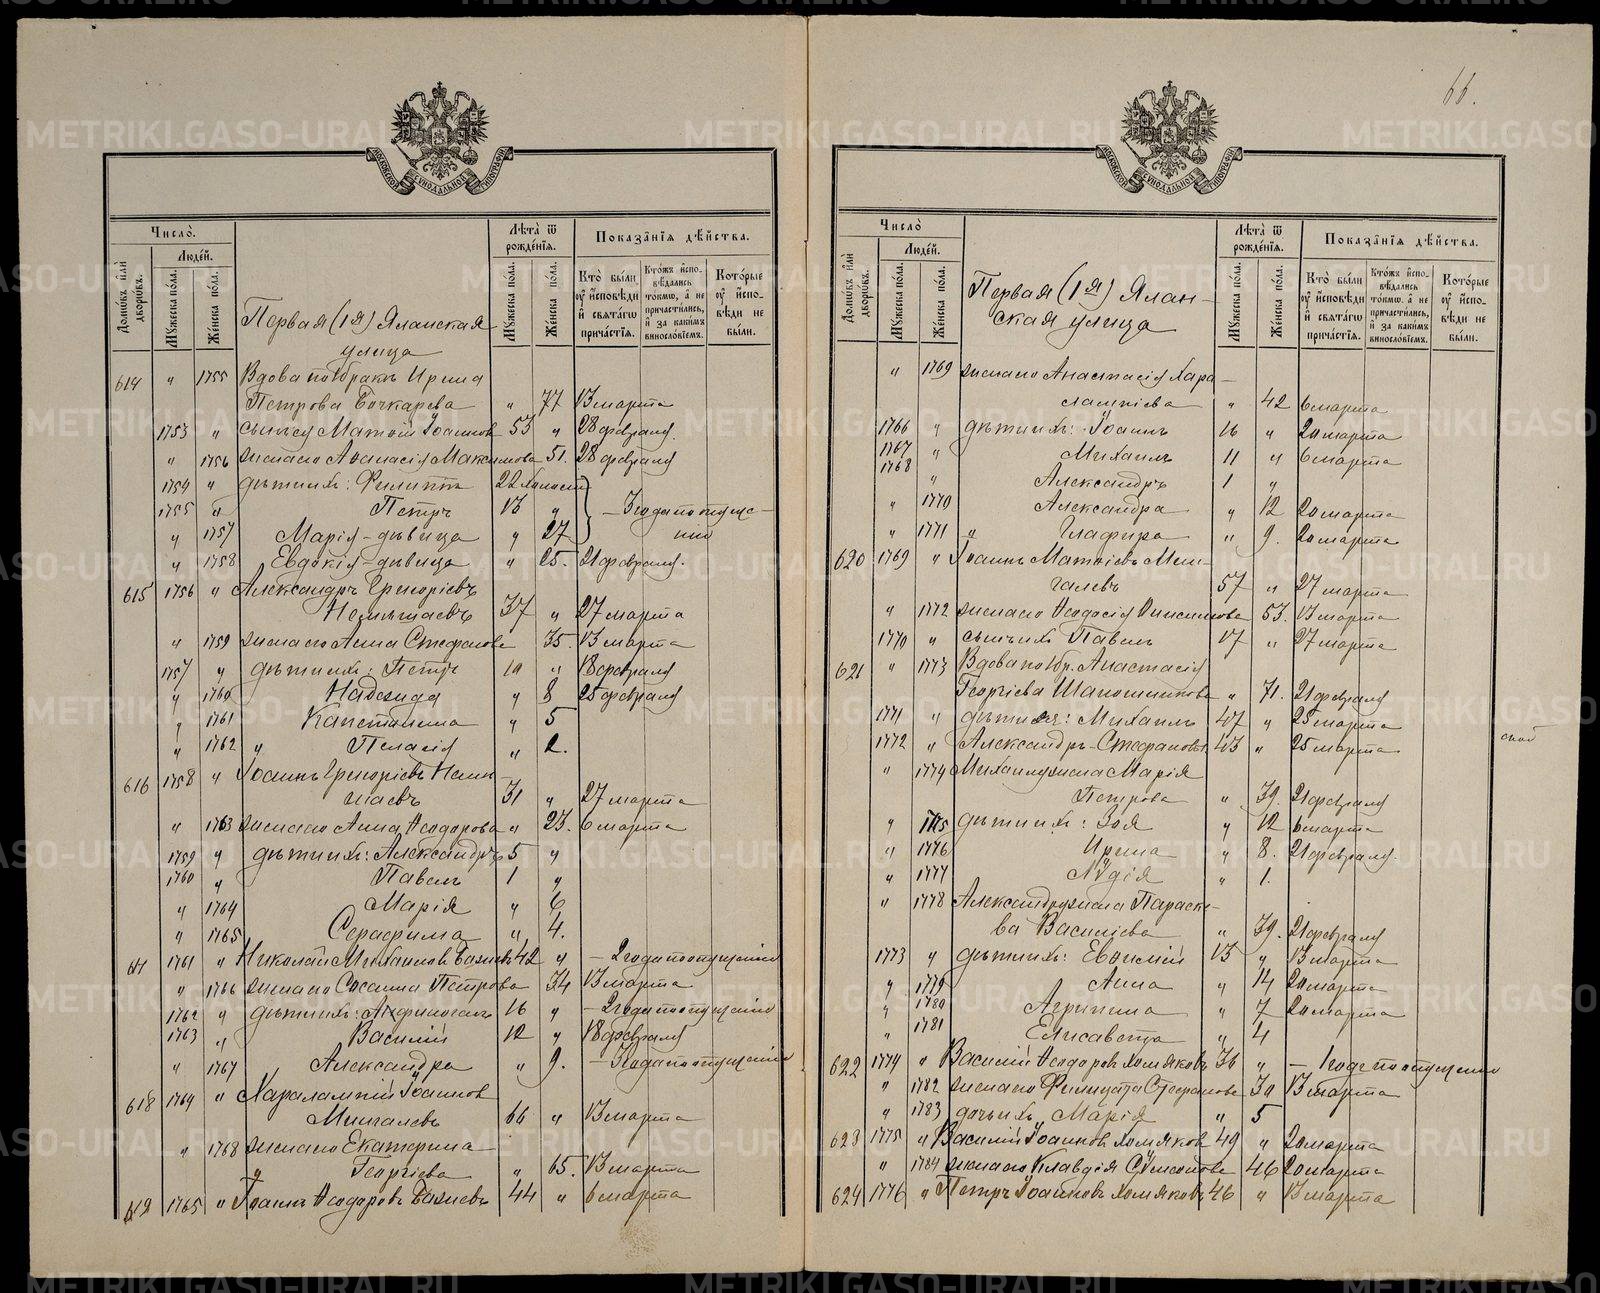 66.
МОСКОВСКОЙ СУНОДАЛЬНОЙ ТИПОГРАФІИ
Число̀.
Людéй.
Домѡ́въ и҆лѝ дворѡ́въ.
Мꙋ́жеска по́ла.
Же́нска по́ла.
Лѣ́та ѿ рожде́нїѧ.
Мꙋ́жеска по́ла.
Же́нска по́ла.
Показа̑нїѧ дѣ́йства.
Кто̀ бы́ли ᲂу҆ и҆сповѣ́ди и҆ свѧта́гѡ прича́стїѧ.
Кто́жъ и҆сповѣ́дались то́кмѡ, а҆ не причасти́лись, и҆ за каки́мъ винослові́емъ.
Кото́рые ᲂу҆ и҆сповѣ́ди не бы́ли.
Первая (1я) Яланская
улица
614 " 1755 Вдова по 1 бракѣ Ирина
Петрова Бочкарева " 77 13 марта
1753 " сынъ ея Матѳій Іоанновъ 53 " 28 февраля.
" 1756 жена его Аѳанасія Максимова 51. 28 февраля
1754 " дѣти ихъ: Филиппъ 22 холостъ
1755 " Петръ 13 " — 3 года по опуще-
" 1757 Марія - дѣвица " 27 нію
" 1758 Евдокія - дѣвица " 25. 21 февраля.
615 1756 " Александръ Григорієвъ
37 " 27 марта
" 1759 жена его Анна Стефанова 35. 13 марта
1757 " дѣти ихъ: Петръ 10 " 18 февраля
" 1760 Надежда " 8 25 февраля
" 1761 Капетолина " 5
" 1762 " Пелагія " 2.
616 1758 " Іоаннъ Григорієвъ
31 " 27 марта
" 1763 жена его Анна Ѳеодорова " 23. 6 марта
1759 " дѣти ихъ: Александръ 5 "
1760 " Павелъ 1 "
" 1764 Марія " 6
" 1765 Серафима " 4.
617 1761 " Николай Михаиловъ 42 " — 2 года по опущенію
" 1766 жена его Сосанна Петрова 34 13 марта
1762 " дѣти ихъ: 16 " — 2 года по опущенію
1763 " Василій 12 " 18 февраля
" 1767 Александра " 9. — 3 года по опущенію
618 1764 " Харалампій Іоанновъ
Мингалевъ 66 " 13 марта
" 1768 жена его Екатерина
" Георгіева " 65. 13 марта
619 1765 " Іоаннъ Ѳеодоровъ 44 " 6 марта
Число̀
Людéй.
Домѡ́въ и҆лѝ дворѡ́въ.
Мꙋ́жеска по́ла.
Же́нска по́ла.
Лѣ́та ѿ рожде́нїѧ.
Мꙋ́жеска по́ла.
Же́нска по́ла.
Показа̑нїѧ дѣ́йства.
Кто̀ бы́ли ᲂу҆ и҆сповѣ́ди и҆ свѧта́гѡ прича́стїѧ.
Кто́жъ и҆сповѣ́дались то́кмѡ, а҆ не причасти́лись, и҆ за каки́мъ винослові́емъ.
Кото́рые ᲂу҆ и҆сповѣ́ди не бы́ли.
Первая (1я) Ялан-
ская улица
" 1769 жена его Анастасія Хара-
лампіева " 42 6 марта
1766 " дѣти ихъ: Іоаннъ 16 " 20 марта
1767 " Михаилъ 11 " 6 марта
1768 " Александръ 1 "
" 1770 Александра " 12 20 марта
" 1771 " Глафира " 9. 20 марта
620 1769 " Іоаннъ Матѳіевъ Мин-
галевъ 57 " 27 марта
" 1772 жена его Ѳеодосія Онисимова 53. 13 марта
1770 " сынъ ихъ Павелъ 17 " 27 марта
621 " 1773 Вдова по 1 бр. Анастасія
Георгіева Шапошникова " 71. 21 февраля
1771 " дѣти ея: Михаилъ 47 " 25 марта
1772 " Александръ - Стефановы 43 " 25 марта
" 1774 Михаилу жена Марія
Петрова " 39. 21 февраля
" 1775 дѣти ихъ: Зоя " 12 6 марта
" 1776 Ирина " 8. 21 февраля.
" 1777 Лѵдія " 1.
" 1778 Александру жена Параске-
ва Василіева " 39. 21 февраля
1773 " дѣти ихъ: Евѳимій 13 " 13 марта
" 1779 Анна " 14 20 марта
" 1780 Агрипина " 7 20 марта
" 1781 Елисавета " 4
622 1774 " Василій Ѳеодоровъ Хомяковъ 36 " — 1 годъ по опущенію
" 1782 жена его Филицата Стефанова 30 13 марта
" 1783 дочь ихъ Марія " 5
623 1775 " Василій Іоанновъ Хомяковъ 49 " 20 марта
" 1784 жена его Клавдія Сѵмеонова 46 20 марта
624 1776 " Петръ Іоанновъ Хомяковъ 46 " 13 марта
METRIKI.GASO-URAL.RU